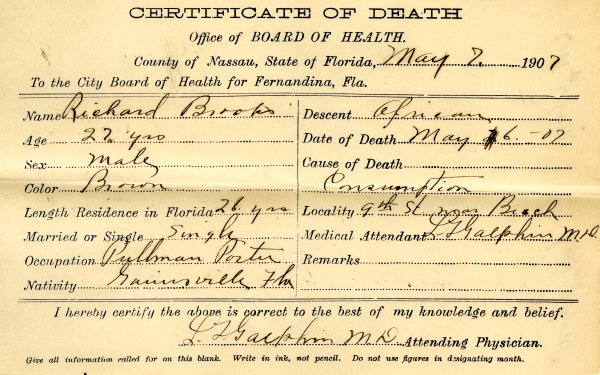 CERTIFICATE OF DEATH
Office of BOARD OF HEALTH.
County of Nassau, State of Florida, May 7. 1907
To the City Board of Health for Fernandina, Fla.
Name Richard Brooks
Age 27 yrs
Sex Male
Color Brown
Length Residence in Florida 26 yrs
Married or Single Single
Occupation Pullman Porter
Nativity Gainsville Fla
Descent African
Date of Death May 6-07
Cause of Death
Consumption
Locality 9th St near Beech
Medical Attendant L Galphin M.D.
Remarks
I hereby certify the above is correct to the best of my knowledge and belief.
Galphin M D Attending Physician.
Give all information called for on this blank. Write in ink, not pencil. Do not use figures in designating month.